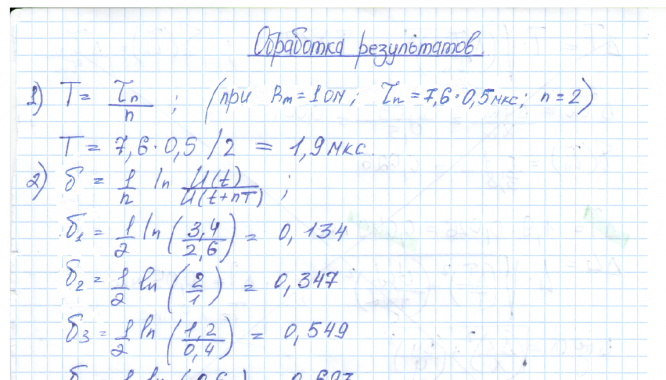 Обработка результатов
1) T = τn/n ; (при Rm=1 Ом; τn=7,6·0,5мкс; n=2)
T = 7,6·0,5/2 = 1,9 мкс.
2) δ = 1/n ln U(t)/U(t+nT) ;
δ1 = 1/2 ln (3,4/2,6) = 0,134
δ2 = 1/2 ln (2/1) = 0,347
δ3 = 1/2 ln (1,2/0,4) = 0,549